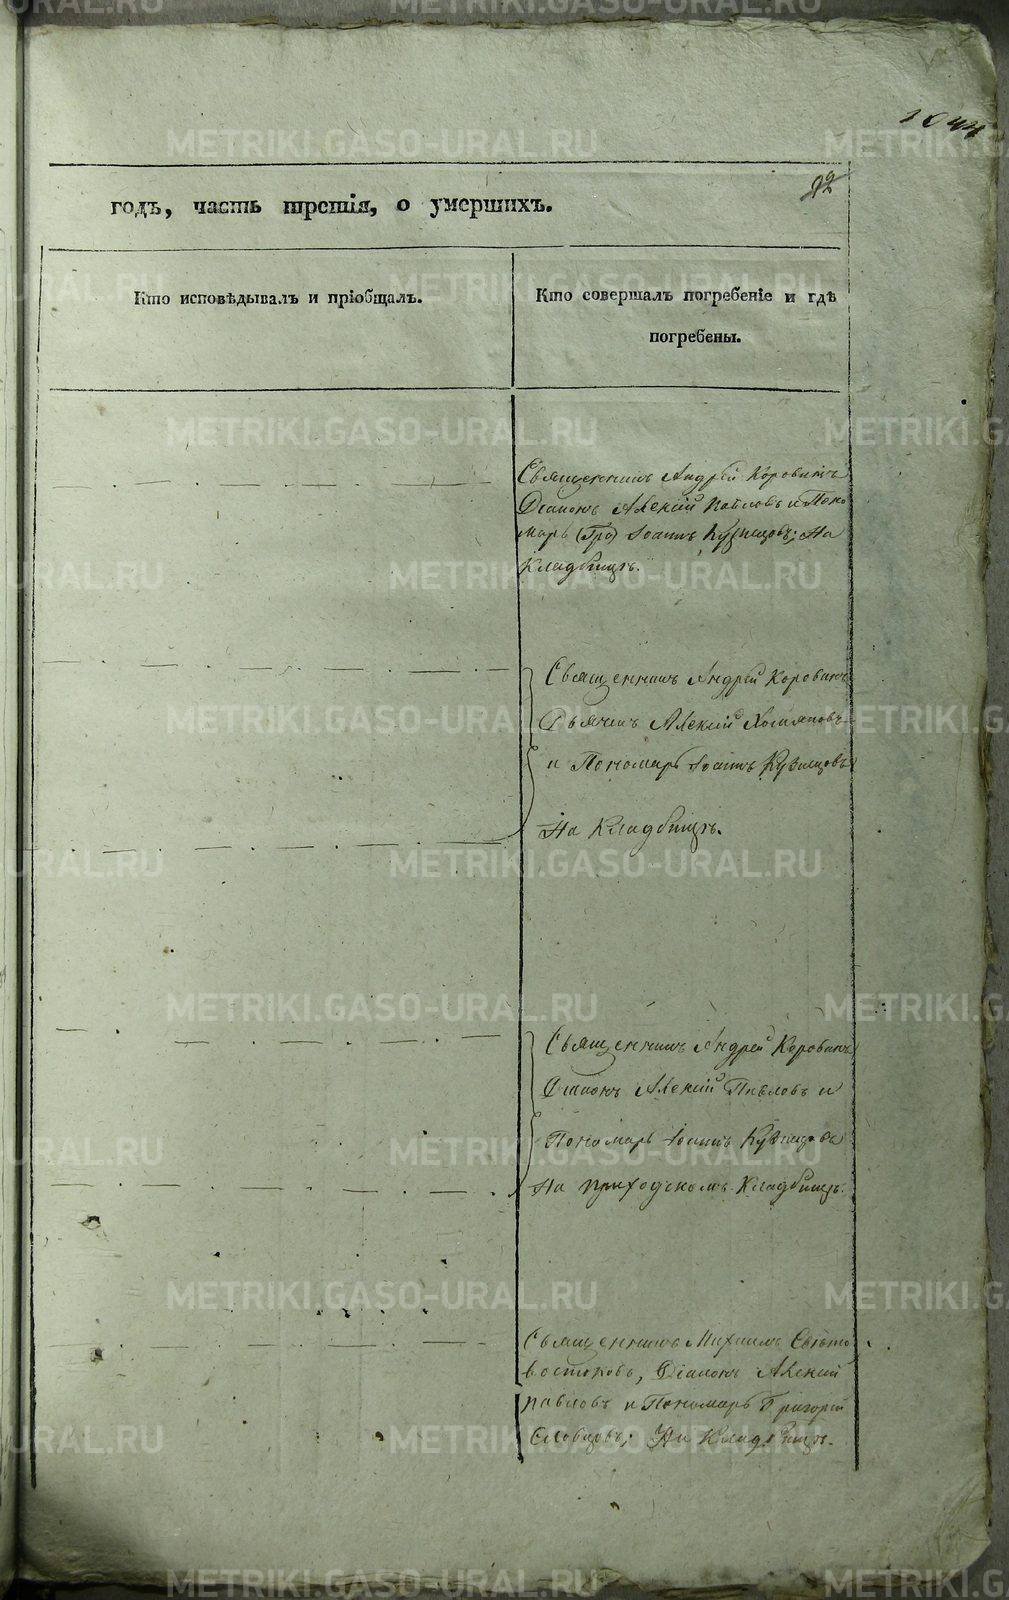 1044
92
годъ, часть третія, о умершихъ.
Кто исповѣдывалъ и пріобщалъ.
Кто совершалъ погребеніе и гдѣ
погребены.
Священникъ Андрей Коровинъ
Діаконъ Алексій Павловъ и Поно
марь Іоаннъ Кузнецовъ; На
Кладбищѣ.
Священникъ Андрей Коровинъ
Дьячекъ Алексій
и Пономарь Іоаннъ Кузнецовъ
На Кладбищѣ.
Священникъ Андрей Коровинъ
Діаконъ Алексій Павловъ и
Пономарь Іоаннъ Кузнецовъ
На приходскомъ Кладбищѣ.
Священникъ Михаилъ Свѣто
востоковъ, Діаконъ Алексій
Павловъ и Пономарь Григорій
Словцовъ; На Кладбищѣ.
METRIKI.GASO-URAL.RU